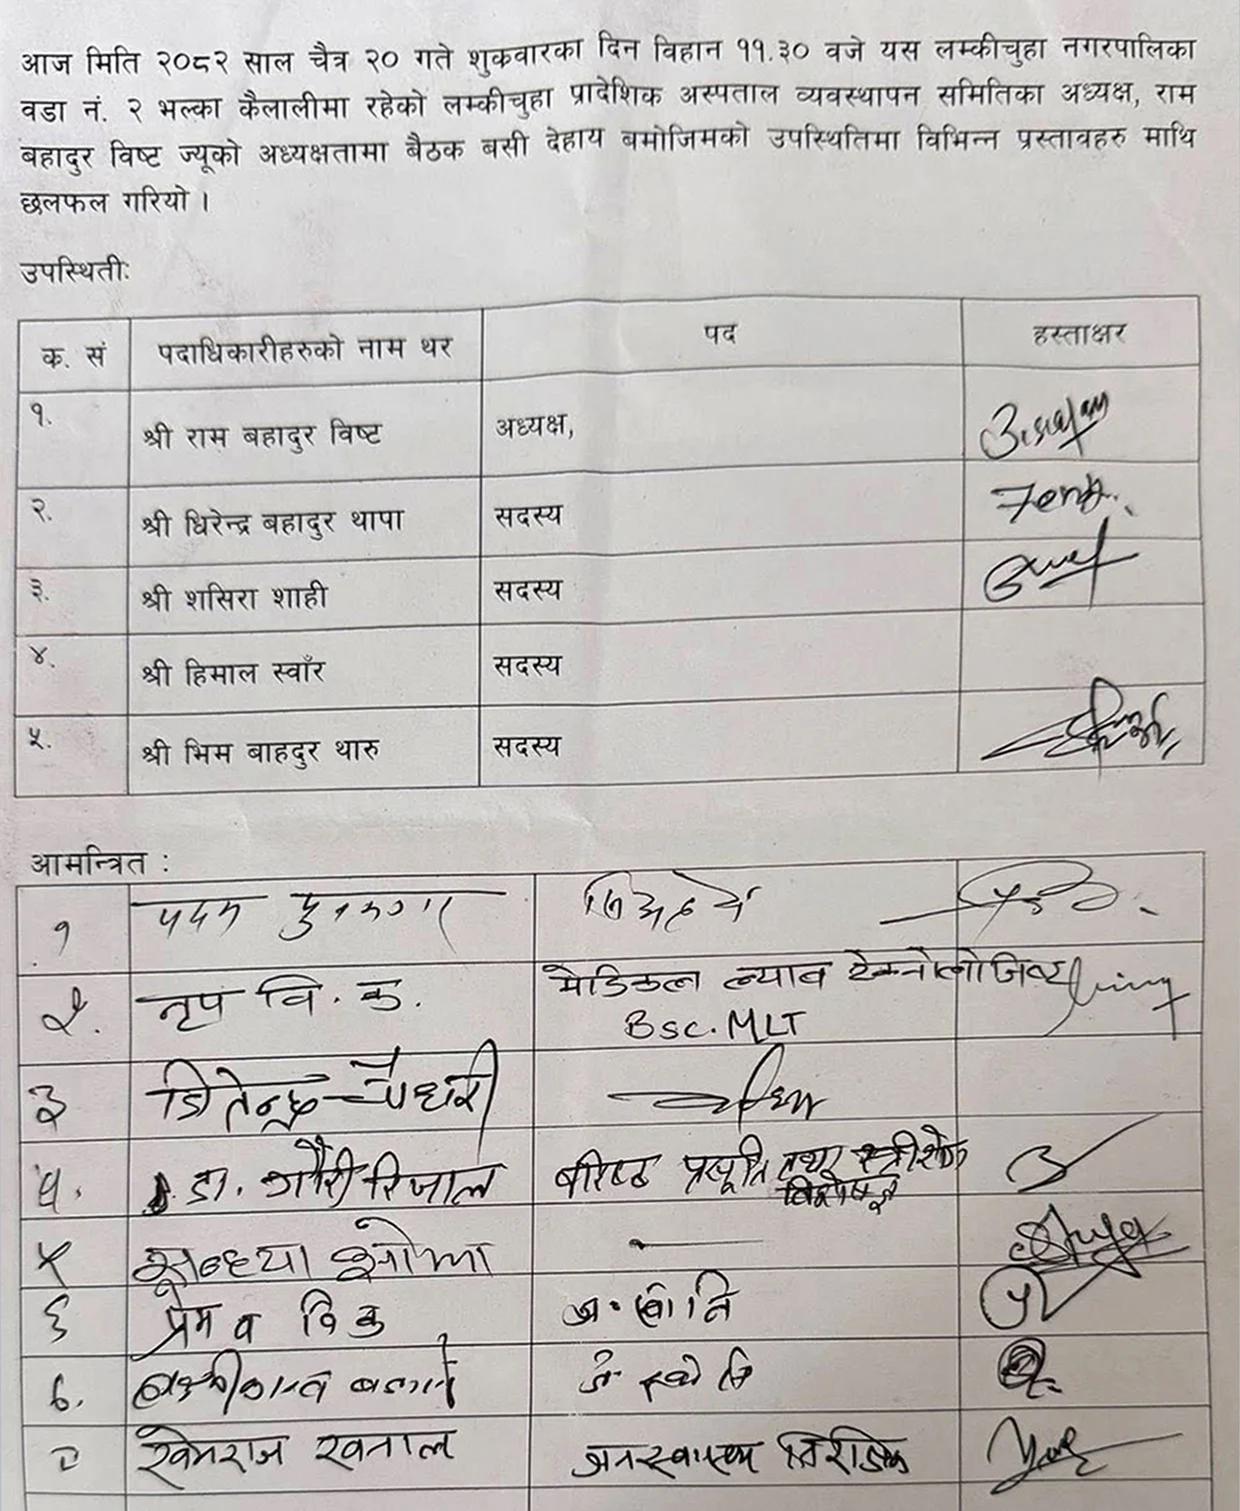 आज मिति २०८२ साल चैत्र २० गते शुक्रवारका दिन विहान ११.३० वजे यस लम्कीचुहा नगरपालिका
वडा नं. २ भल्का कैलालीमा रहेको लम्कीचुहा प्रादेशिक अस्पताल व्यवस्थापन समितिका अध्यक्ष, राम
बहादुर विष्ट ज्यूको अध्यक्षतामा बैठक बसी देहाय बमोजिमको उपस्थितिमा विभिन्न प्रस्तावहरु माथि
छलफल गरियो ।
उपस्थिती:
क. सं पदाधिकारीहरुको नाम थर पद हस्ताक्षर
१. श्री राम बहादुर विष्ट अध्यक्ष,
२. श्री धिरेन्द्र बहादुर थापा सदस्य
३. श्री शसिरा शाही सदस्य
४. श्री हिमाल स्वाँर सदस्य
५. श्री भिम बाहदुर थारु सदस्य
आमन्त्रित :
१ पदम
२. नृप वि. क. मेडिकल ल्याव टेक्नोलोजिष्ट
Bsc. MLT
३ जितेन्द्र चौधरी
४. डा. गौरी रिजाल बरिष्ठ प्रसूति तथा स्त्रीरोग
विशेषज्ञ
५ सन्ध्या
६ प्रेम व वि क
७.
८ खेमराज खनाल जनस्वास्थ्य निरीक्षक